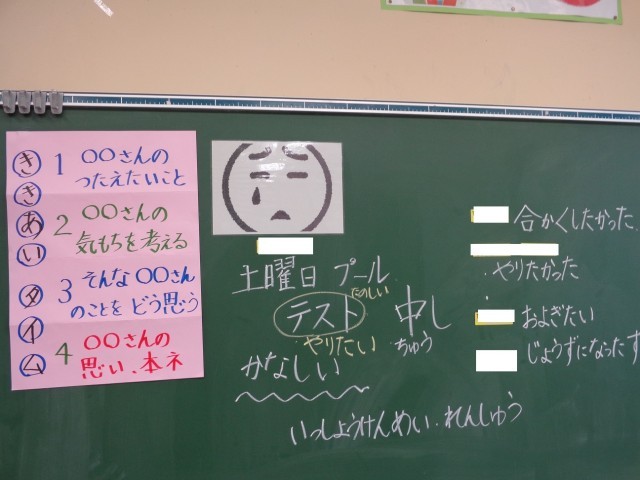 ききあいタイム
1 〇〇さんの
つたえたいこと
2 〇〇さんの
気もちを考える
3 そんな〇〇さん
のことを どう思う
4 〇〇さんの
思い、本ネ
土曜日 プール
たのしい
テスト 中し
やりたい ちゅう
かなしい
いっしょうけんめい.れんしゅう
合かくしたかった.
・やりたかった
およぎたい
じょうずになったす